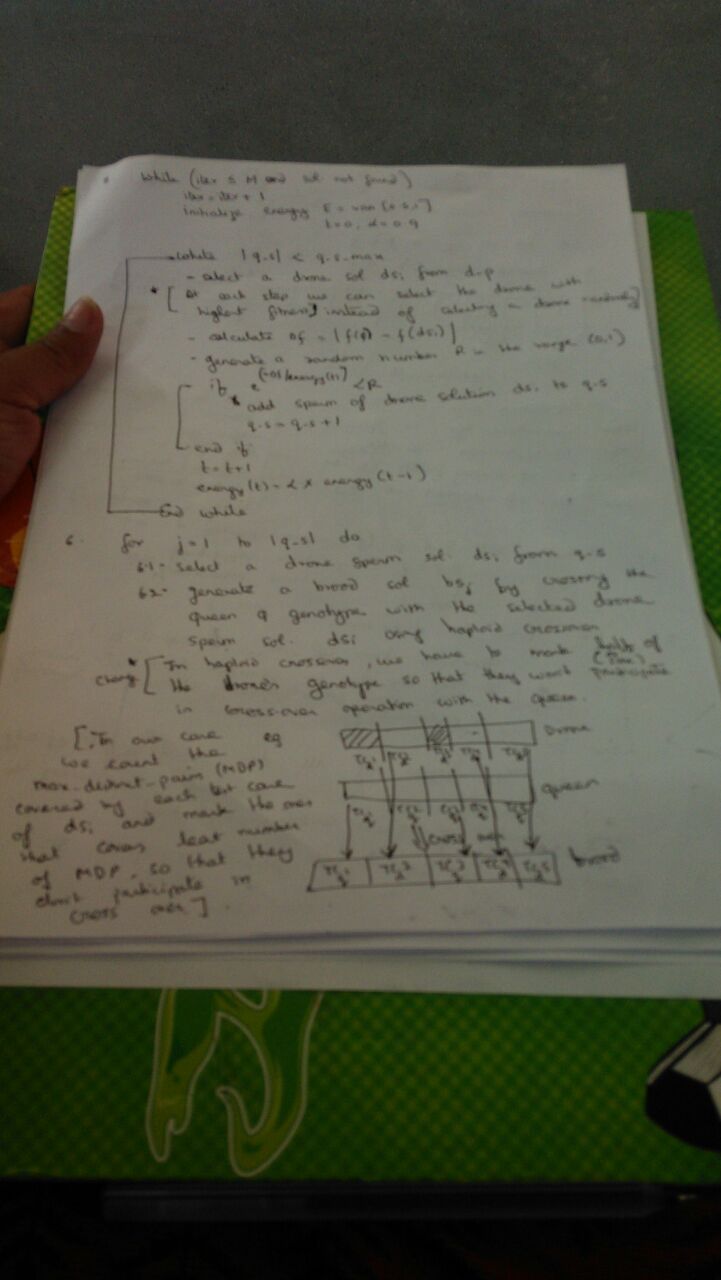 while (iter ≤ M and sol not found)
iter = iter + 1
initialize energy E = ran [0.5,1]
t=0, α=0.9
while |q-s| < q-s-max
- select a drone sol dsi from d-p
* [ At each step we can select the drone with
highest fitness, instead of selecting a drone randomly]
- calculate δf = |f(q) - f(dsi)|
- generate a random number R in the range (0,1)
if e^(-δf/energy(t)) < R
* add sperm of drone solution dsi to q-s
q-s = q-s + 1
end if
t = t+1
energy(t) = α × energy(t-1)
End while
6. for j=1 to |q-s| do
6.1- select a drone sperm sol. dsi from q-s
6.2- generate a brood sol bsj by crossing the
queen q genotype with the selected drone
sperm sol. dsi using haploid crossover
* Change [In haploid crossover, we have to mark halfs of
the drone's genotype so that they won't participate
in cross-over operation with the queen.
[In our case eg
we count the
max-distinct-pairs (MDP)
covered by each test case
of dsi and mark the ones
that covers least number
of MDP, so that they
don't participate in
cross over]
Drone
Queen
cross over
brood